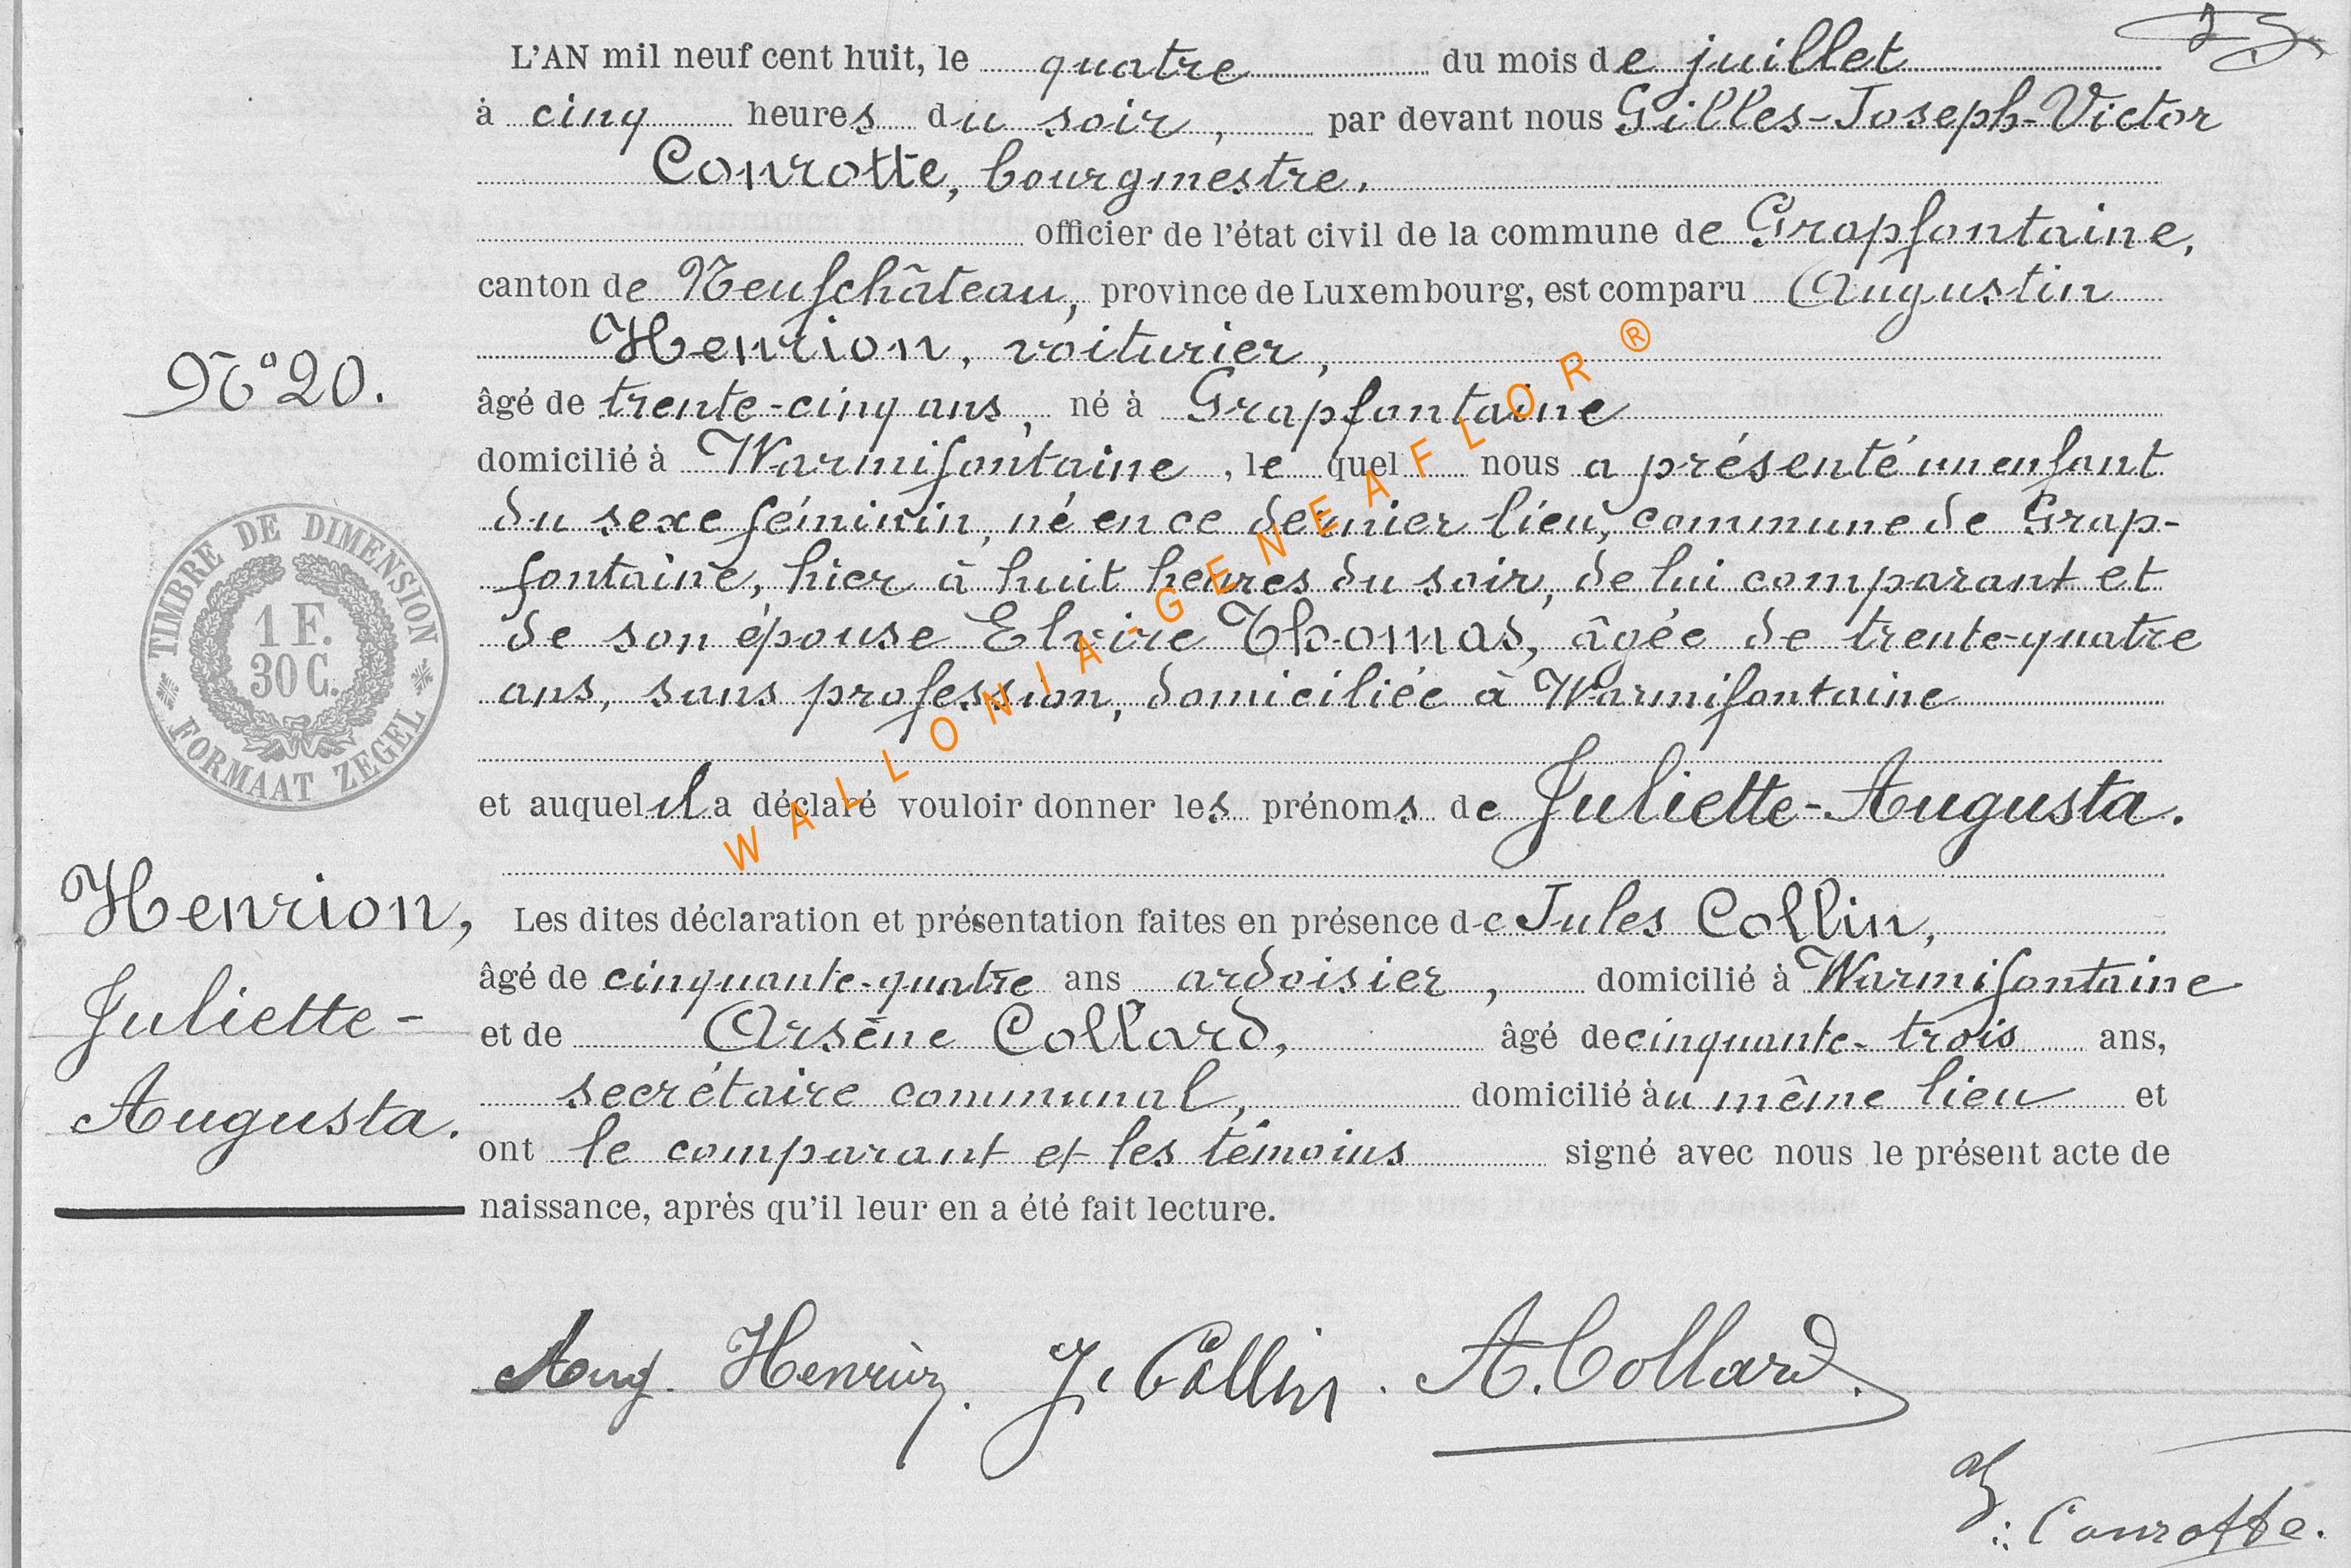 L'AN mil neuf cent huit, le quatre du mois de juillet
à cinq heures du soir, par devant nous Gilles-Joseph-Victor
Conrotte, bourgmestre.
officier de l'état civil de la commune de Grapfontaine,
canton de Neufchâteau, province de Luxembourg, est comparu Augustin
Henrion, voiturier,
N° 20.
âgé de trente-cinq ans, né à Grapfontaine
domicilié à Warmifontaine, le quel nous a présenté un enfant
du sexe féminin, né en ce dernier lieu, commune de Grap-
fontaine, hier à huit heures du soir, de lui comparant et
de son épouse Elvire Thomas, âgée de trente-quatre
ans, sans profession, domiciliée à Warmifontaine
TIMBRE DE DIMENSION
1 F.
30 C.
FORMAAT ZEGEL
et auquel il a déclaré vouloir donner les prénoms de Juliette-Augusta.
Henrion,
Juliette-
Augusta.
Les dites déclaration et présentation faites en présence de Jules Collin,
âgé de cinquante-quatre ans ardoisier, domicilié à Warmifontaine
et de Arsène Collard, âgé de cinquante-trois ans,
secrétaire communal, domicilié àu même lieu et
ont le comparant et les témoins signé avec nous le présent acte de
naissance, après qu'il leur en a été fait lecture.
Aug. Henrion. J. Collin. A. Collard.
Conrotte.
WALLONIA-GENEAFLOR ®